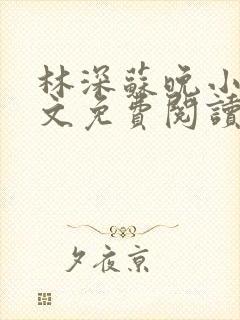 林深蘇晚小
文免費閱讀
夕夜京